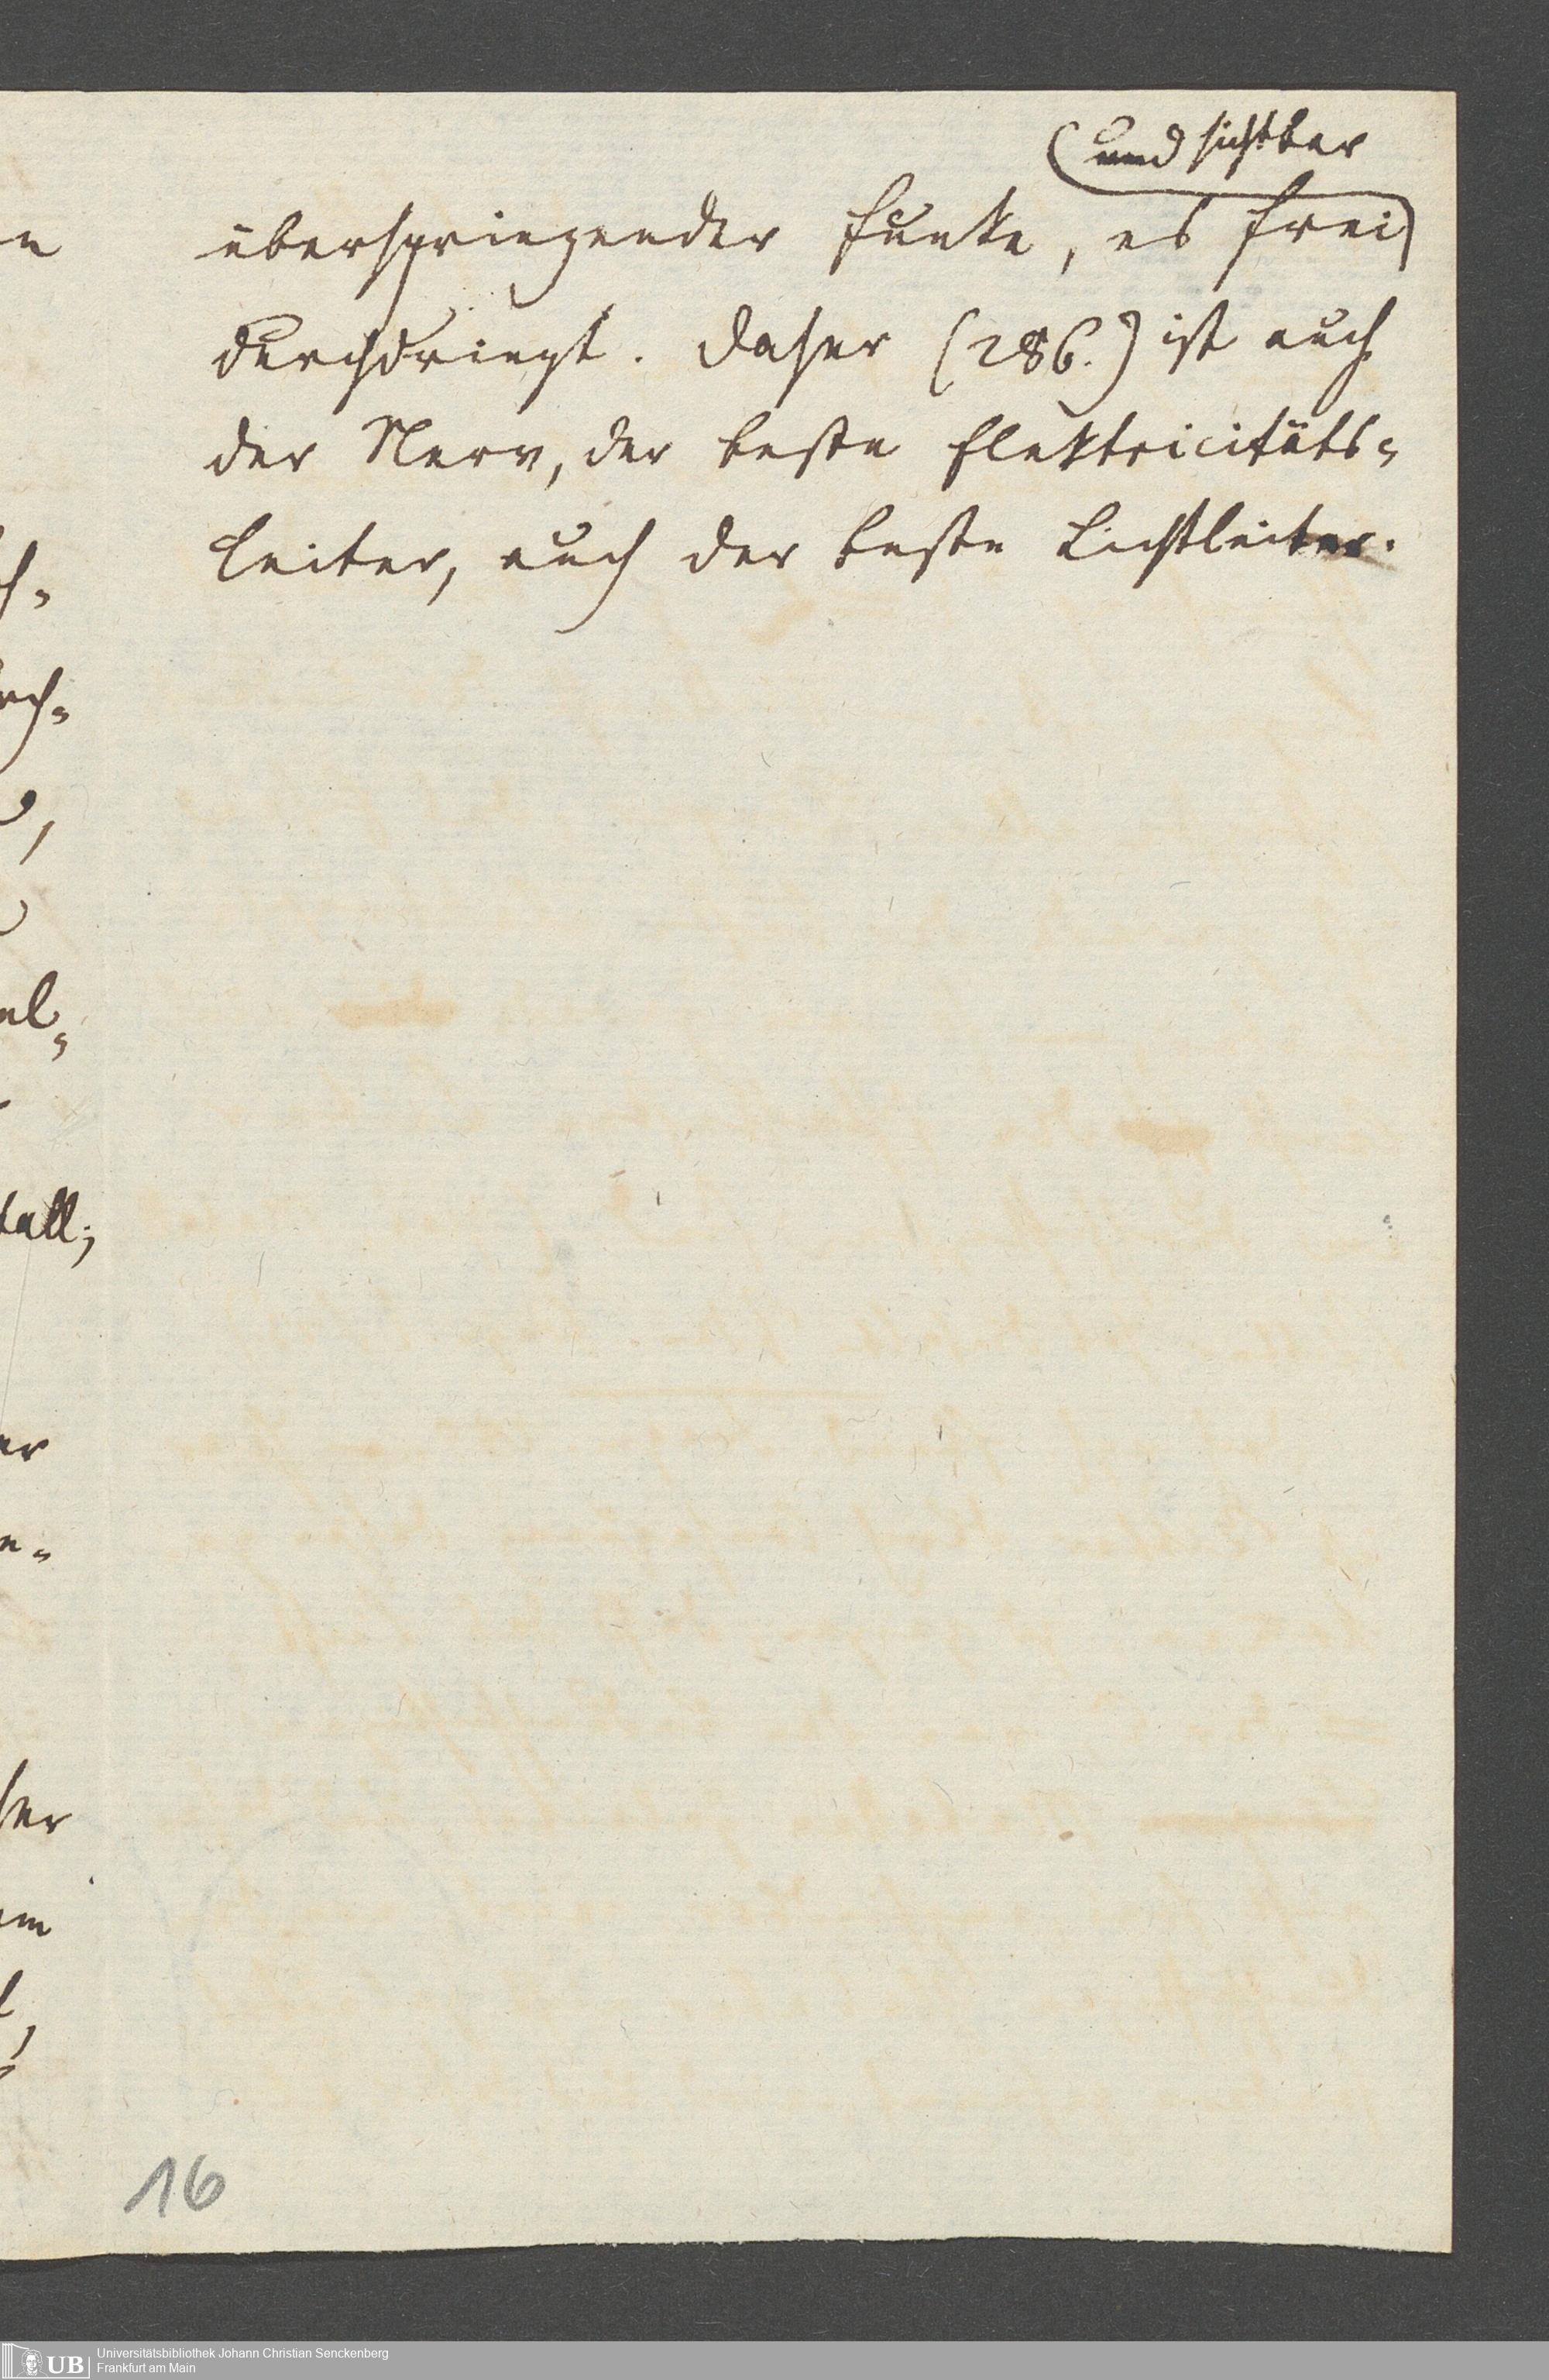 und sichtbar
überspringender Funke, es frei
durchdringt. Daher (286.) ist auch
der Nerv, der beste Elektricitäts-
leiter, auch der beste Lichtleiter.
n
ch-
rch-
el-
tall;
er
n-
her
em
16
UB
Universitätsbibliothek Johann Christian Senckenberg
Frankfurt am Main